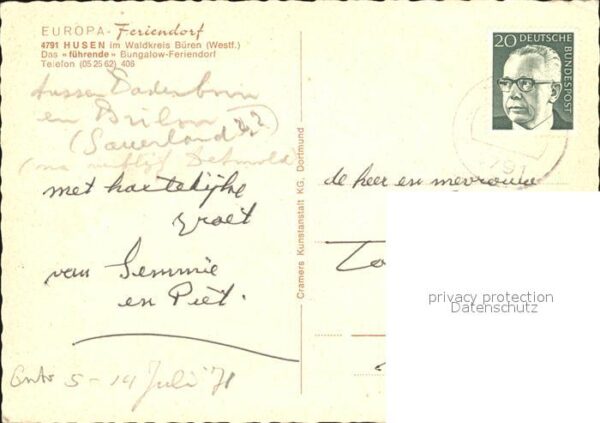 EUROPA-Feriendorf
4791 HUSEN im Waldkreis Büren (Westf.)
Das «führende» Bungalow-Feriendorf
Telefon (05 25 62) 406
tussen Paderborn
en Brilon
(Sauerland)
(na verblijf Detmold)
met hartelijke
groet
van Semmie
en Piet.
5-19 Juli 71
Cramers Kunstanstalt KG, Dortmund
20 DEUTSCHE
BUNDESPOST
de heer en mevrouw
privacy protection
Datenschutz